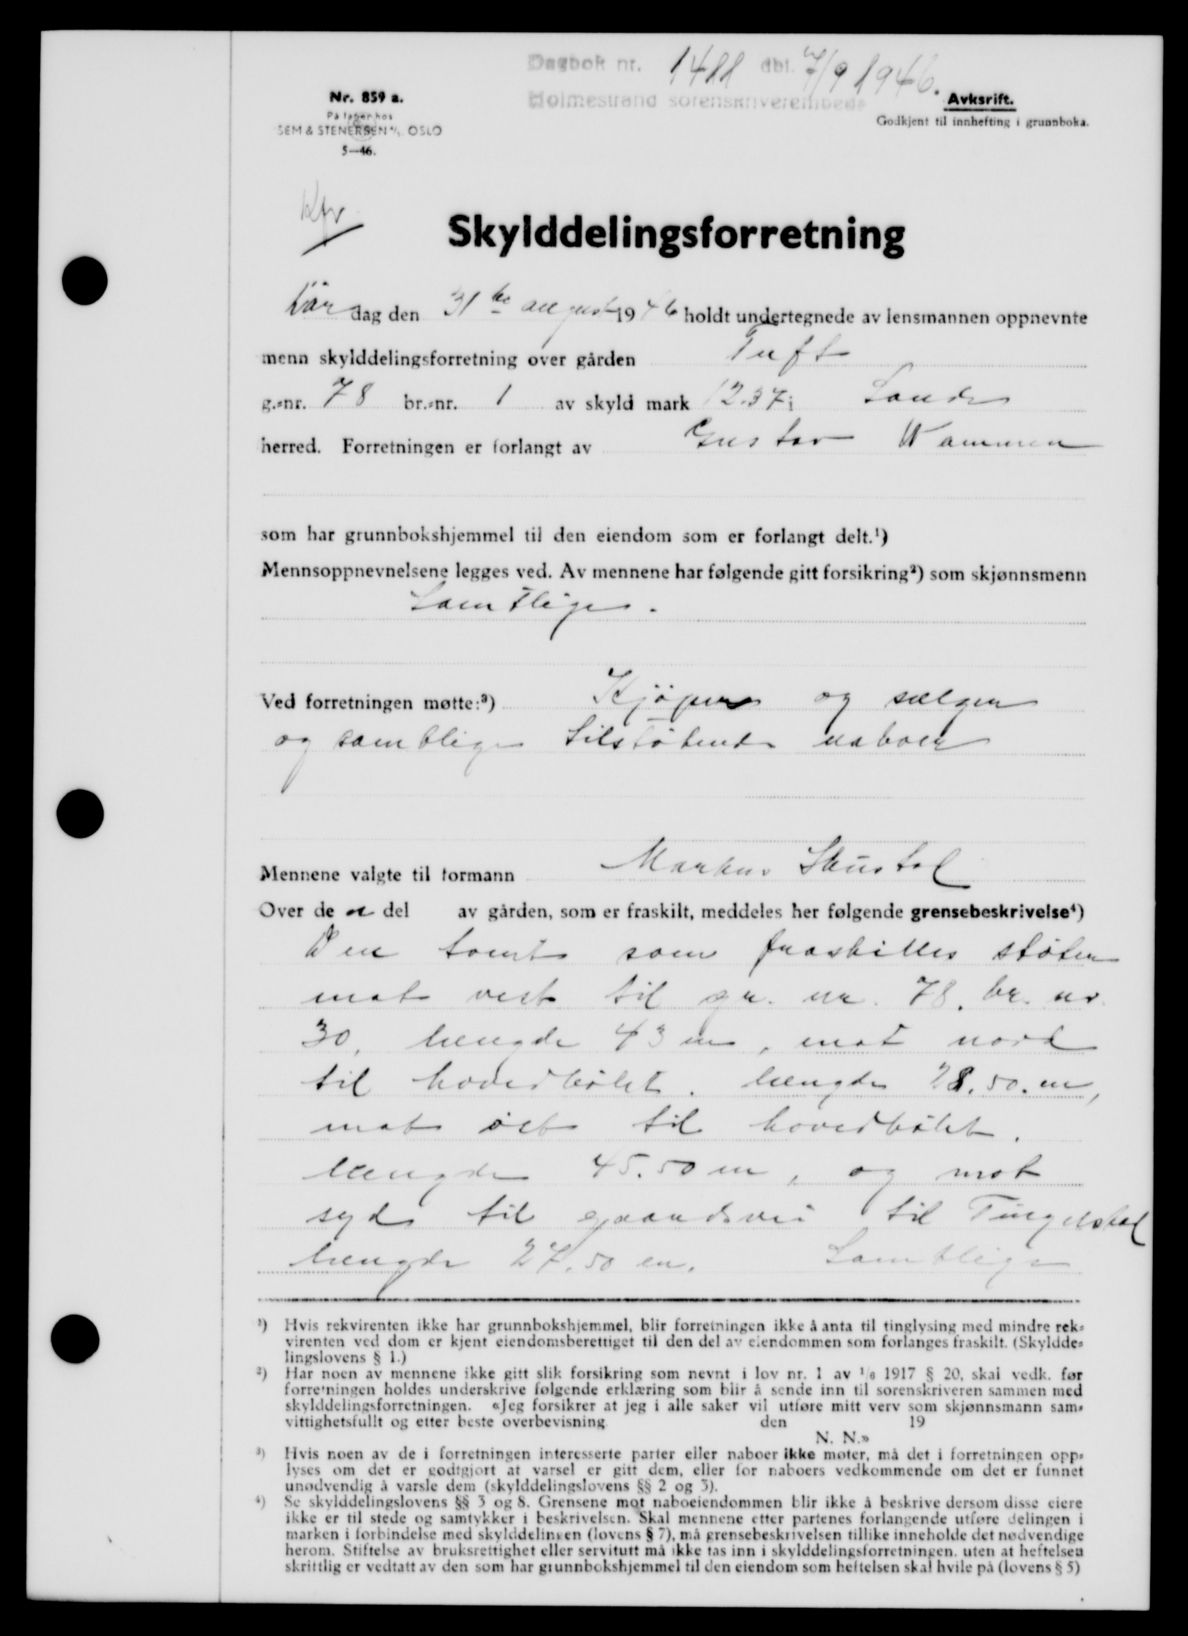 Dagbok nr. 1411 dbl. 7/9 1946.
Holmestrand sorenskriverembede
Nr. 859 a.
På lager hos
SEM & STENERSEN A/S OSLO
5—46.
Avskrift.
Godkjent til innhefting i grunnboka.
Skylddelingsforretning
Lør dag den 31te august 1946 holdt undertegnede av lensmannen oppnevnte
menn skylddelingsforretning over gården Tuft
g.-nr. 78 br.-nr. 1 av skyld mark 12.37 i Sande
herred. Forretningen er forlangt av Gustav Wammen
som har grunnbokshjemmel til den eiendom som er forlangt delt.¹)
Mennsoppnevnelsene legges ved. Av mennene har følgende gitt forsikring²) som skjønnsmenn
Samtlige.
Ved forretningen møtte:³) Kjøper og sælger
og samtlige tilstøtende naboer
Mennene valgte til formann Markus Skustad
Over de n del av gården, som er fraskilt, meddeles her følgende grensebeskrivelse⁴)
Den tomt som fraskilles støter
mot vest til gr. nr. 78. br. nr.
30, længde 43 m, mot nord
til hovedbølet. længde 28.50. m,
mot øst til hovedbølet.
længde 45.50 m, og mot
syd til gaardsvei til Tingelstad
længde 27.50 m. Samtlige
¹) Hvis rekvirenten ikke har grunnbokshjemmel, blir forretningen ikke å anta til tinglysing med mindre rek-
virenten ved dom er kjent eiendomsberettiget til den del av eiendommen som forlanges fraskilt. (Skyldde-
lingslovens § 1.)
²) Har noen av mennene ikke gitt slik forsikring som nevnt i lov nr. 1 av 1/6 1917 § 20, skal vedk. før
forretningen holdes underskrive følgende erklæring som blir å sende inn til sorenskriveren sammen med
skylddelingsforretningen. «Jeg forsikrer at jeg i alle saker vil utføre mitt verv som skjønnsmann sam-
vittighetsfullt og etter beste overbevisning den 19
N. N.»
³) Hvis noen av de i forretningen interesserte parter eller naboer ikke møter, må det i forretningen opp-
lyses om det er godtgjort at varsel er gitt dem, eller for naboers vedkommende om det er funnet
unødvendig å varsle dem (skylddelingslovens §§ 2 og 3).
⁴) Se skylddelingslovens §§ 3 og 8. Grensene mot naboeiendommen blir ikke å beskrive dersom disse eiere
ikke er til stede og samtykker i beskrivelsen. Skal mennene etter partenes forlangende utføre delingen i
marken i forbindelse med skylddelingen (lovens § 7), må grensebeskrivelsen tillike inneholde det nødvendige
herom. Stiftelse av bruksrettighet eller servitutt må ikke tas inn i skylddelingsforretningen, uten at heftelsen
skriftlig er vedtatt av den som har grunnbokshjemmel til den eiendom som heftelsen skal hvile på (lovens § 5)